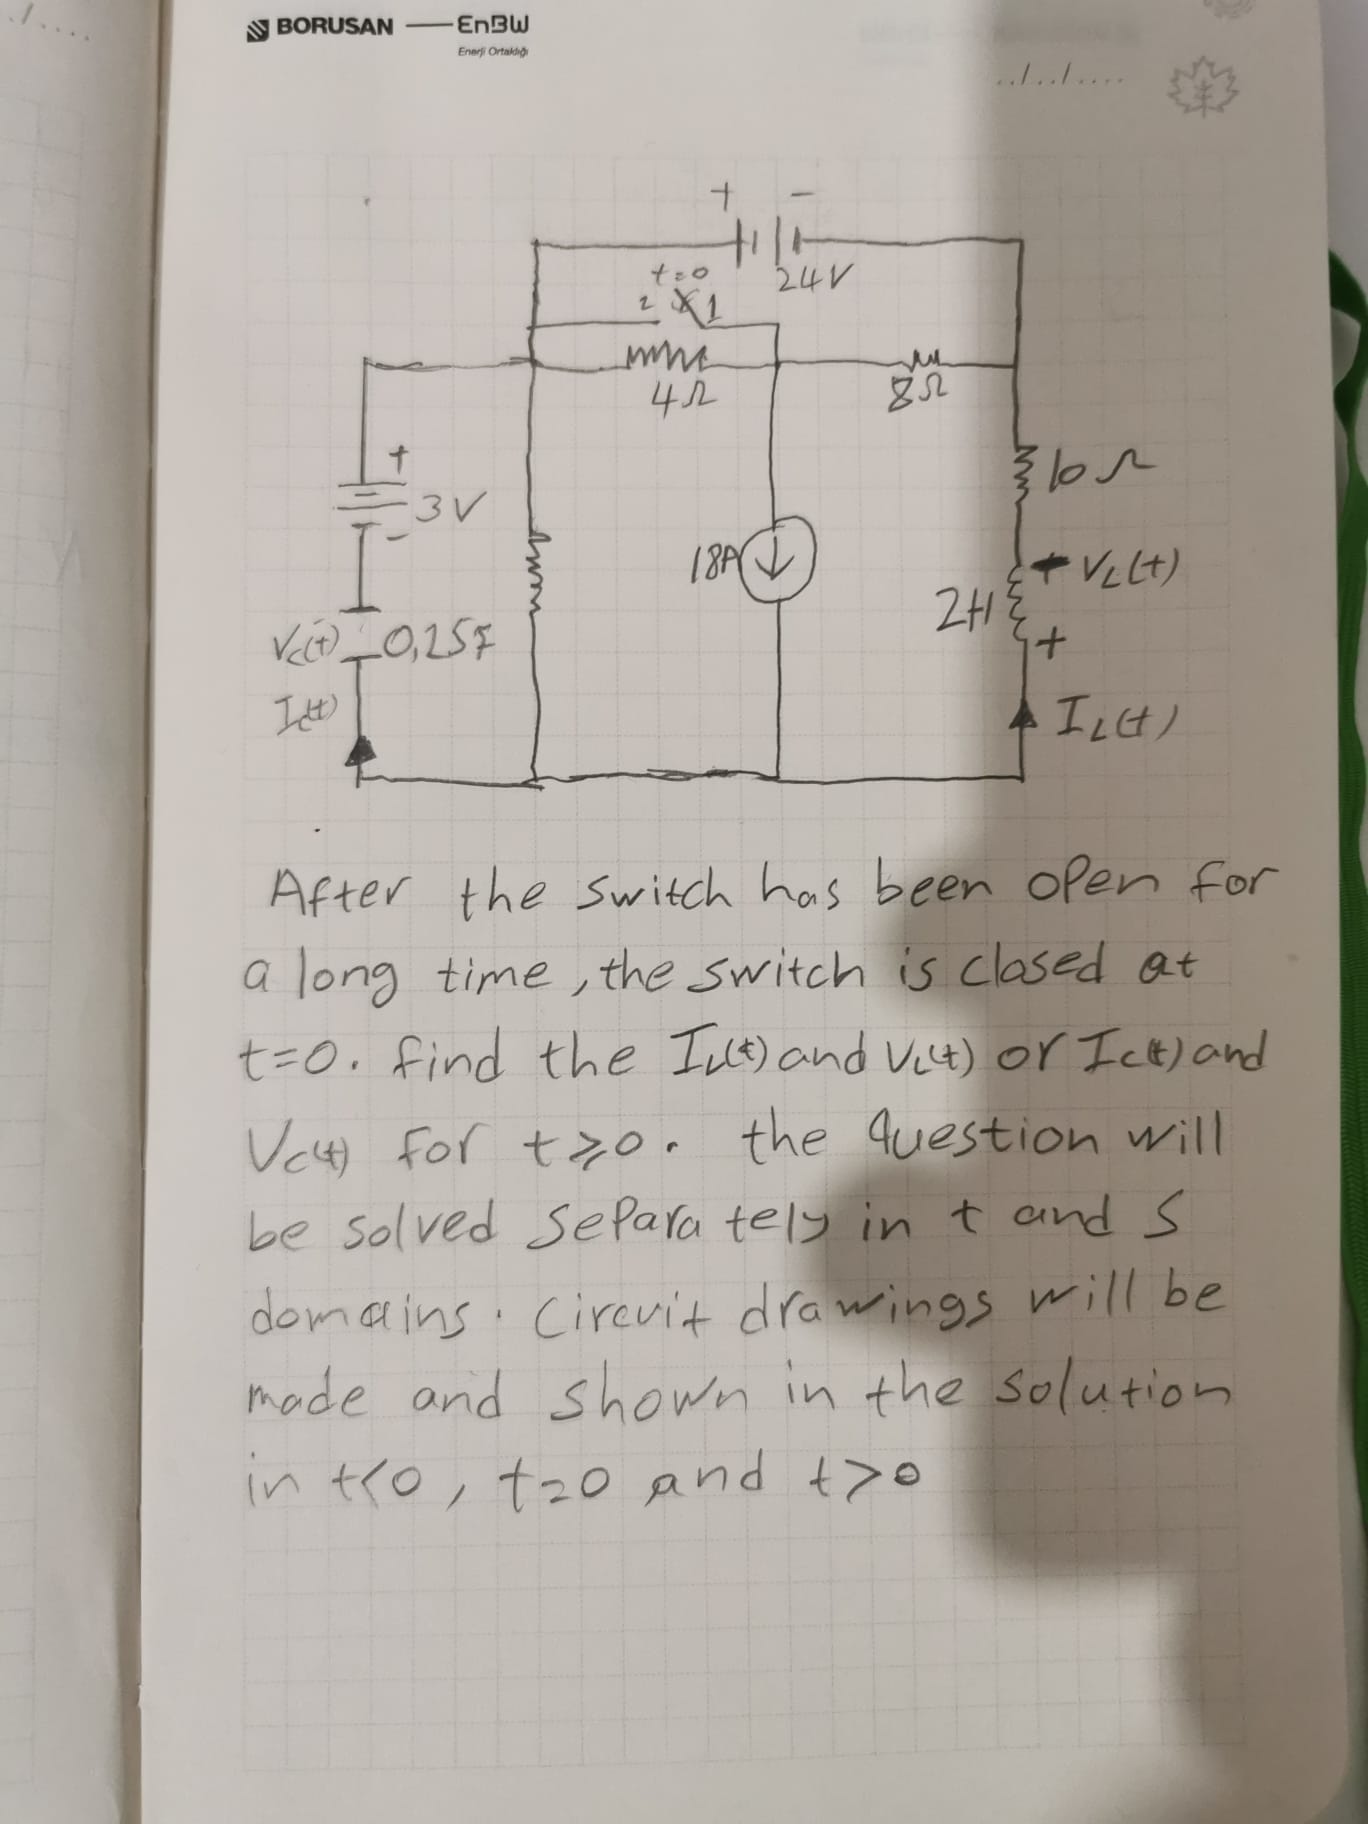 BORUSAN EnBW
Enerji Ortaklığı
../../....
+ -
24V
t=0
2 1
4Ω
8Ω
+
3V
-
10Ω
18A
+ VL(t)
2H
+
Vc(t) 0,25F
Ic(t)
IL(t)
After the switch has been open for
a long time, the switch is closed at
t=0. find the IL(t) and VL(t) or Ic(t) and
Vc(t) for t≥0. the question will
be solved separately in t and s
domains. Circuit drawings will be
made and shown in the solution
in t<0, t=0 and t>0